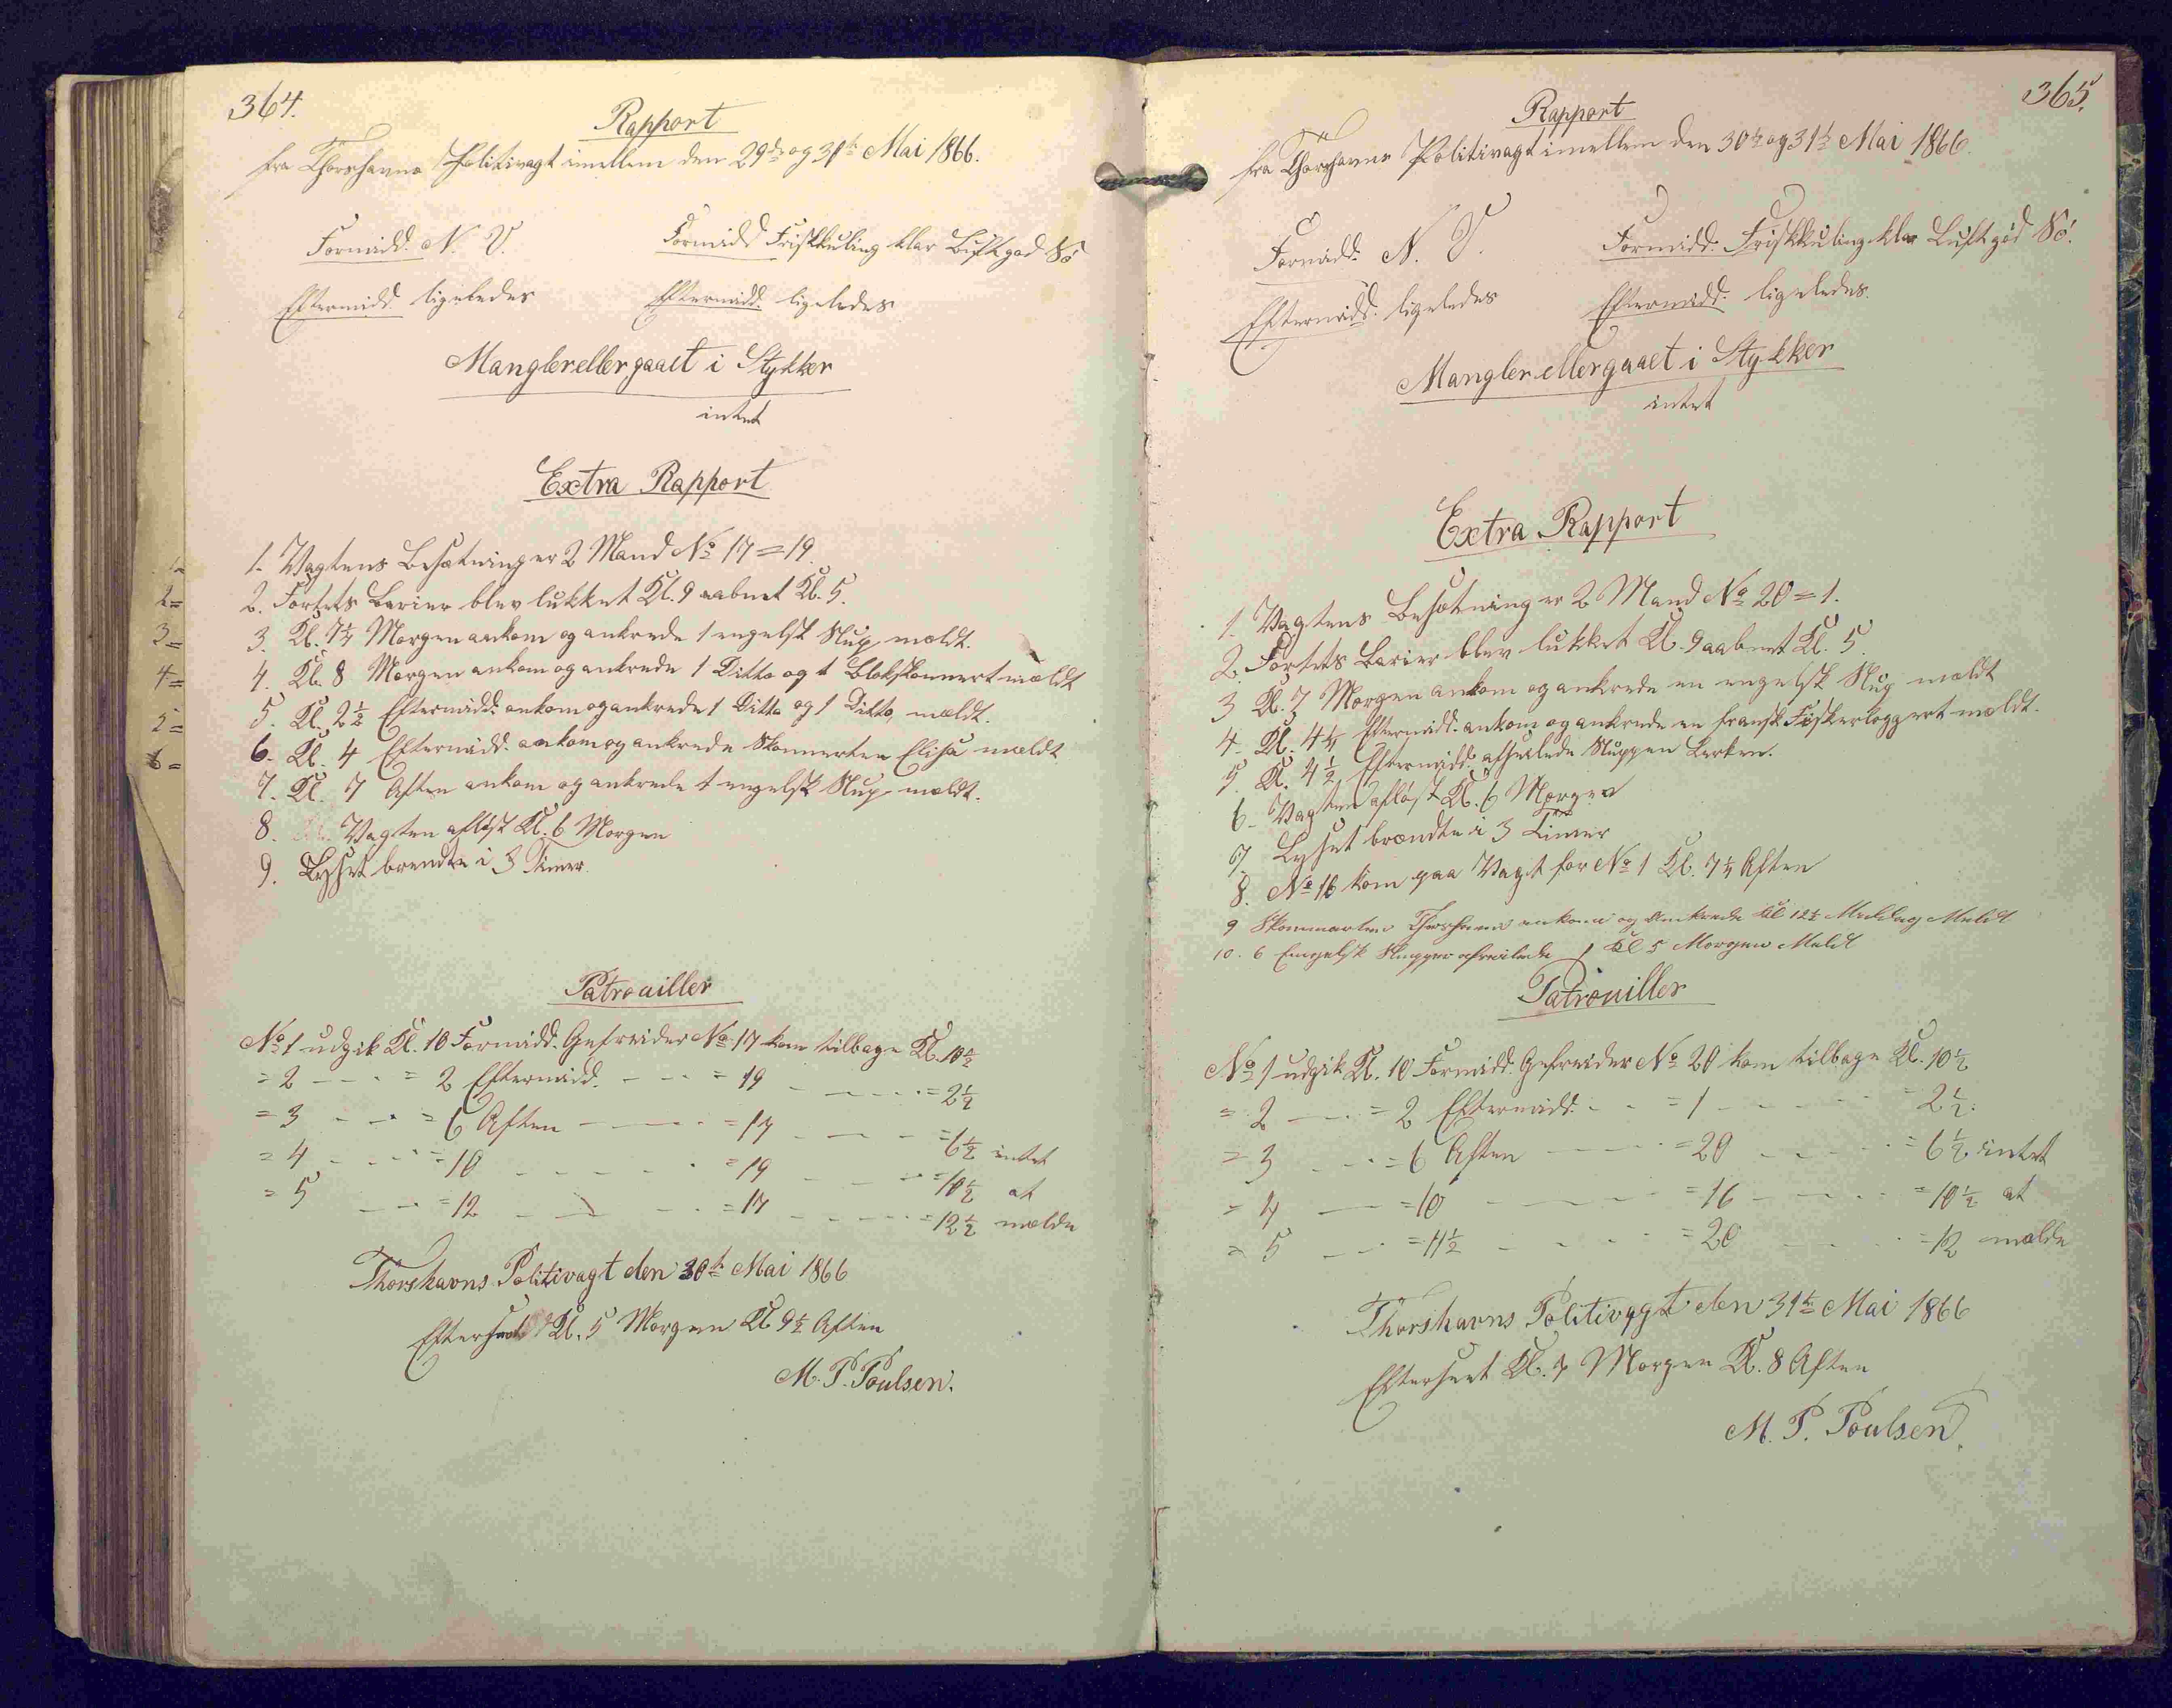 364.
Rapport
fra Thorshavns Politivagt imellem den 29de og 30te Mai 1866.
Formidd. N. V. Formidd Friskkuling klar Luft god Sö
Eftermidd. ligeledes Eftermidd. ligeledes
Mangler eller gaaet i Stykker
intet
Extra Rapport
1. Vagtens Besætning er 2 Mand No 17 = 19.
2. Fortets Barier blev lukket Kl. 9 aabnet Kl. 5.
3. Kl. 7¼ Morgen ankom og ankrede 1 engelsk Slup, mældt.
4. Kl. 8 Morgen ankom og ankrede 1 Ditto og 1 Blokskonnert mældt
5. Kl. 2½ Eftermidd. ankom og ankrede 1 Ditto og 1 Ditto, mældt.
6. Kl. 4 Eftermidd. ankom og ankrede Skonnerten Elisa mældt
7. Kl. 7 Aften ankom og ankrede 1 engelsk Slup mældt.
8. Vagten aflöst Kl. 6 Morgen
9. Lyset brendte i 3 Timer.
Patrouiller
No 1 udgik Kl. 10 Formidd. Gefreider No 17 kom tilbage Kl. 10½
= 2 - - - = 2 Eftermidd. - - - = 19 - - - = 2½
= 3 - - - = 6 Aften - - - = 17 - - - = 6½ intet
= 4 - - - = 10 - - - = 19 - - - = 10½ at
= 5 - - - = 12 - - - = 17 - - - = 12½ mælde
Thorshavns Politivagt den 30te Mai 1866
Efterseet Kl. 5 Morgen Kl 9½ Aften
M. P. Poulsen.
2=
3=
4=
5=
6=
365.
Rapport
fra Thorshavns Politivagt imellem den 30te og 31te Mai 1866.
Formidd. N. V. Formidd. Friskkuling klar Luft god Sö.
Eftermidd. ligeledes Eftermidd. ligeledes.
Mangler eller gaaet i Stykker
intet
Extra Rapport
1. Vagtens Besætning er 2 Mand No 20 = 1.
2. Fortets Barier blev lukket Kl. 9 aabnet Kl. 5.
3 Kl. 7 Morgen ankom og ankrede en engelsk Slup mældt
4. Kl. 4¼ Eftermidd. ankom og ankrede en fransk Fiskerloggert mældt.
5. Kl. 4½ Eftermidd. afseilede Sluppen Lerken.
6. Vagten aflöst Kl. 6 Morgen
7. Lyset brændte i 3 Timer
8. No 16 kom paa Vagt for No 1 Kl. 7¼ Aften
9 Skonnarten Thorshavn ankom og Ankrede Kl 12½ Meddag Meldt
10. 6 Engelsk Slupper afseilede Kl 5 Morgen Meldt
Patrouiller
No 1 udgik Kl. 10 Formidd. Gefreider No 20 kom tilbage Kl. 10½
= 2 - - - = 2 Eftermidd. - - = 1 - - - = 2½.
= 3 - - - = 6 Aften - - - = 20 - - - = 6½ intet
= 4 - - - = 10 - - - = 16 - - - = 10½ at
= 5 - - - = 11½ - - - = 20 - - - = 12 mælde
Thorshavns Politivagt den 31te Mai 1866
Efterseet Kl. 7 Morgen Kl. 8 Aften
M. P. Poulsen.